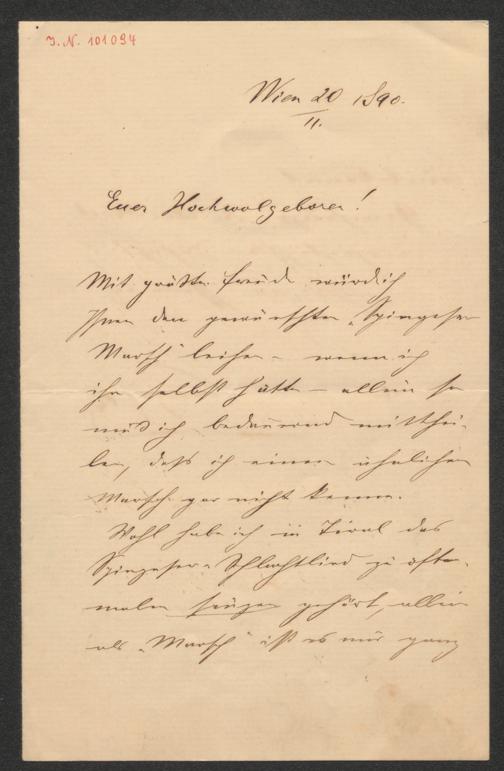 I.N. 101094
Wien 20/11. 1890.
Euer Hochwolgeboren!
Mit größter Freude würde ich
Ihnen den gewünschten „Spingeser
Marsch" leihen – wenn ich
ihn selbst hätte – allein so
muß ich bedauernd mitthei-
len, daß ich einen ähnlichen
Marsch gar nicht kenne.
Wohl habe ich in Tirol das
Spingeser-Schlachtlied zu öfte-
malen singen gehört, allein
als „Marsch" ist es mir ganz